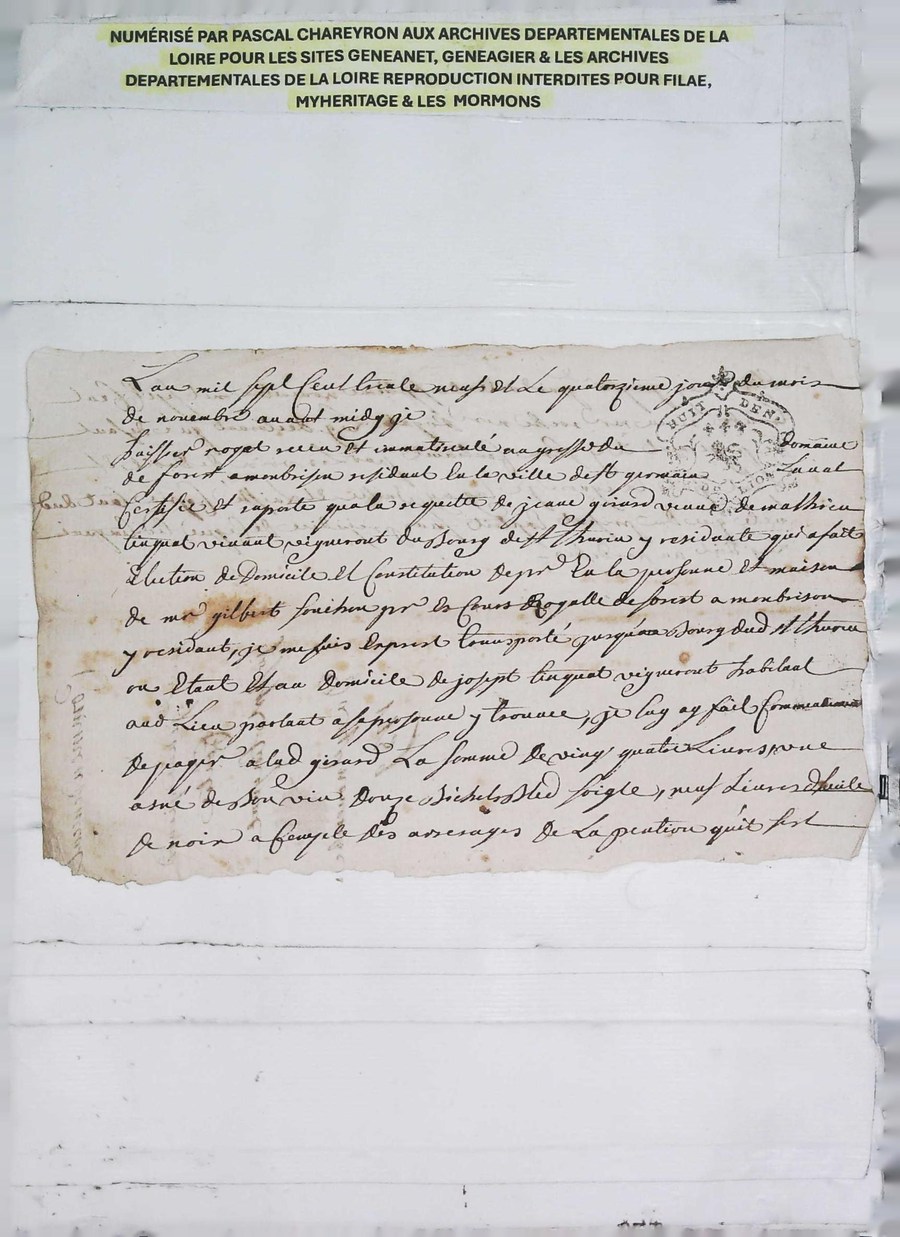 NUMÉRISÉ PAR PASCAL CHAREYRON AUX ARCHIVES DEPARTEMENTALES DE LA
LOIRE POUR LES SITES GENEANET, GENEAGIER & LES ARCHIVES
DEPARTEMENTALES DE LA LOIRE REPRODUCTION INTERDITES POUR FILAE,
MYHERITAGE & LES MORMONS
Lan mil sept Cent trente neuf et Le quatorzieme jour du mois
de novembre avant midy je
HUIT DEN
huissier royal receu et immatriculé au greffe du Domaine
de forest a monbrison residant En la ville de st germain Laval
Certifie et raporte qua la requeste de jeane girard veuve de mathieu
tinqual vivant vigneront du Bourg de st thurin y residante qui a fait
Election de Domicile Et Constitution de pr En la personne Et maison
de mr gilbert pr Es Cours Royalle de forest a monbrison
y residant, je me suis Expres transporté jusquau Bourg dud st thurin
ou Etant Et au Domicile de joseph tinqual vigneront habitant
aud Lieu parlant a sa personne y trouvee, je luy ay fait Commandement
de payer a lad girard La somme de vingt quatre Livres, une
asné de Bon vin douze Bichets Bled soigle, neuf Livres dhuile
de noix a Compte des arrerages de La pention quit sert